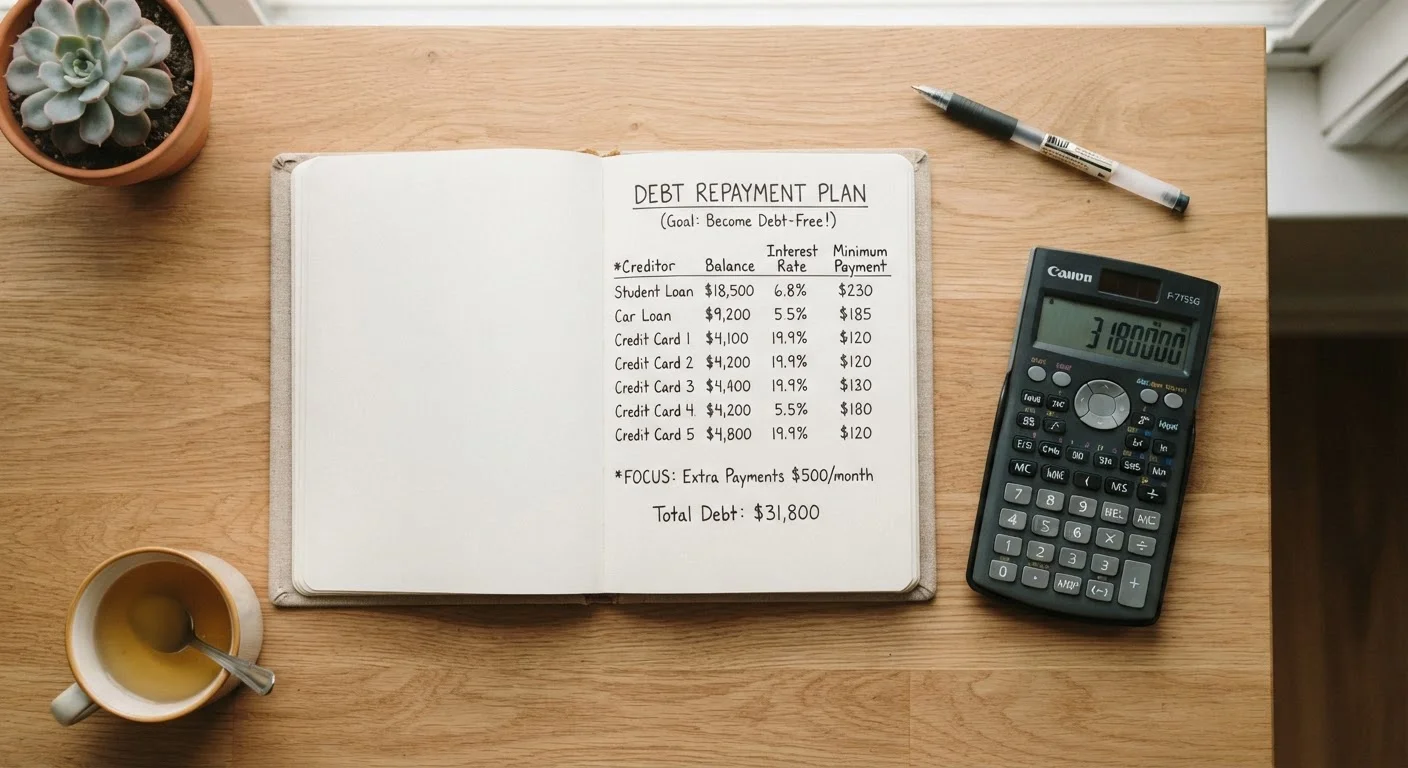 DEBT REPAYMENT PLAN
(Goal: Become Debt-Free!)
*Creditor Balance Interest Rate Minimum Payment
Student Loan $18,500 6.8% $230
Car Loan $9,200 5.5% $185
Credit Card 1 $4,100 19.9% $120
Credit Card 2 $4,200 19.9% $120
Credit Card 3 $4,400 19.9% $130
Credit Card 4 $4,200 5.5% $180
Credit Card 5 $4,800 19.9% $120
*FOCUS: Extra Payments $500/month
Total Debt: $31,800
Canon
3180000
MC ( MS ÷
7 8 9
4 5 6 × ÷
1 2 3 3
0 . (-) +